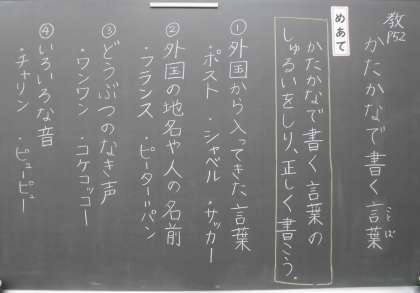 教P52
かたかなで書く言葉
ことば
めあて
かたかなで書く言葉の
しゅるいをしり、正しく書こう。
①外国から入ってきた言葉
・ポスト ・シャベル ・サッカー
②外国の地名や人の名前
・フランス ・ピーターパン
③どうぶつのなき声
・ワンワン ・コケコッコー
④いろいろな音
・チャリン ・ピューピュー